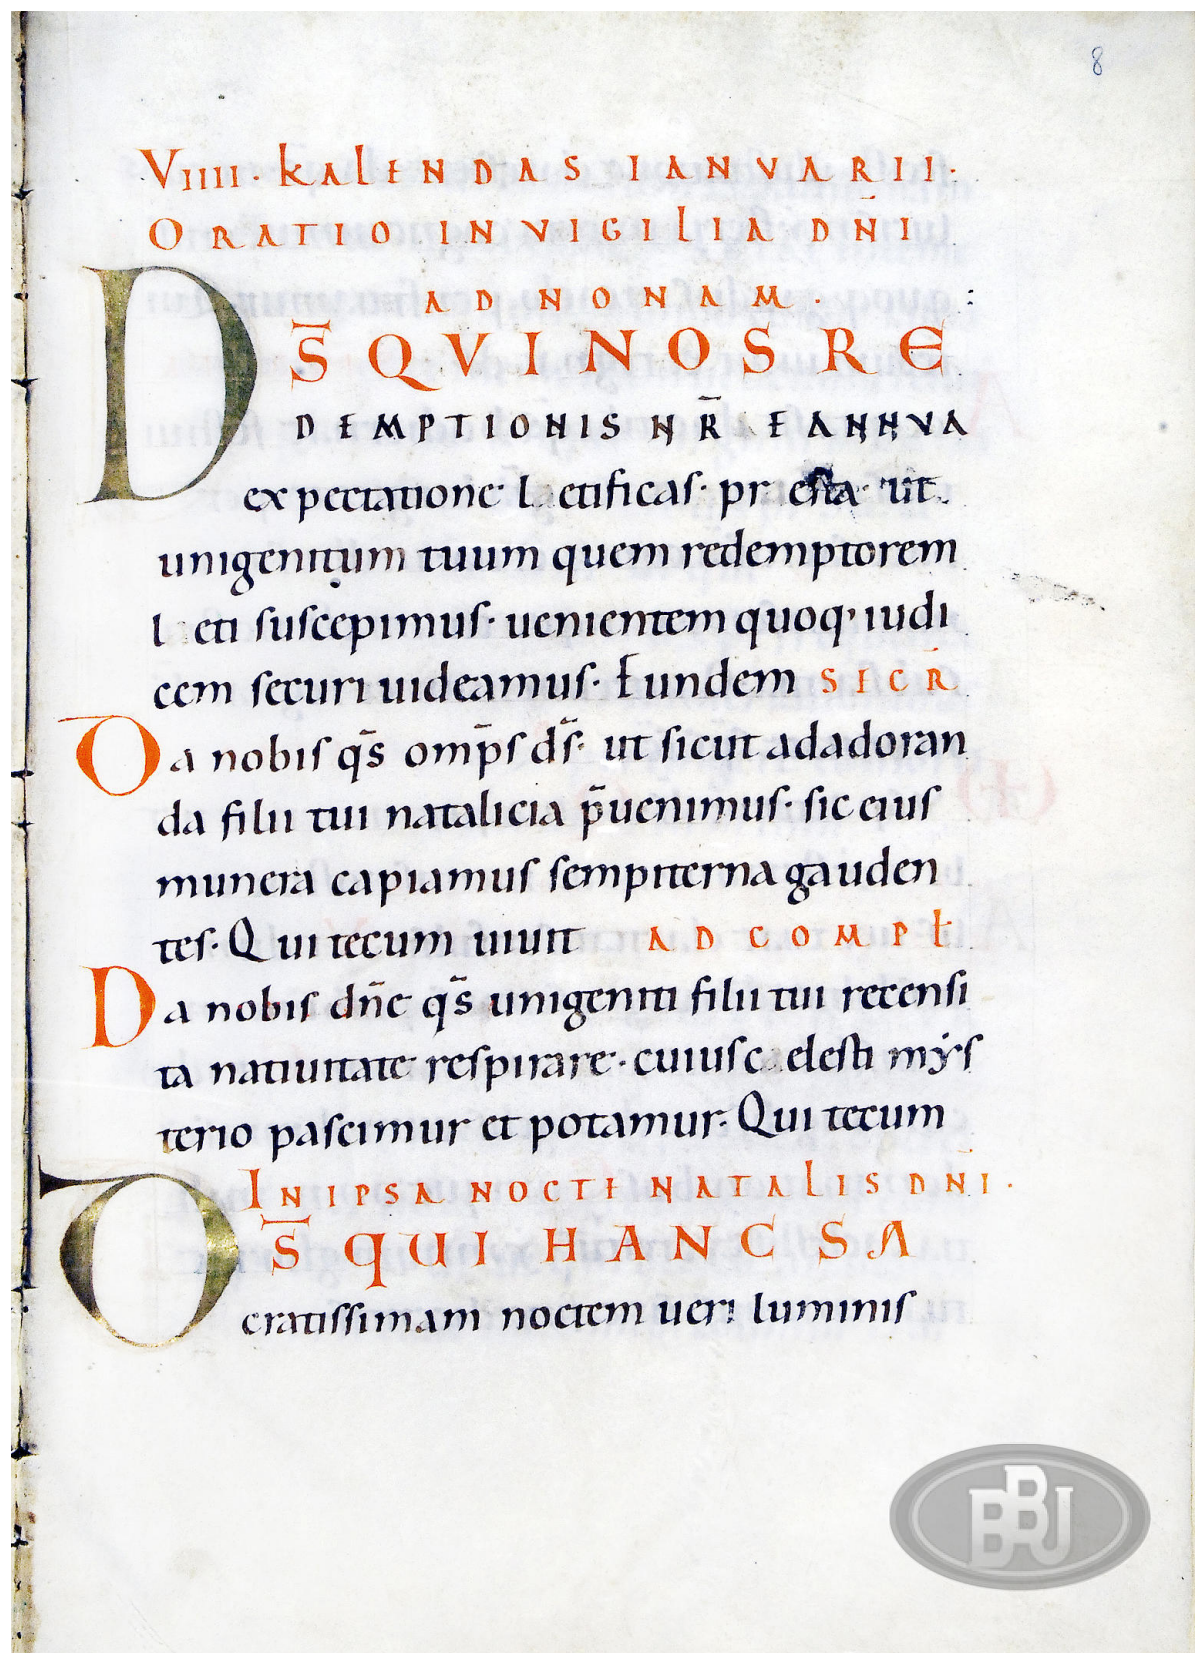 8
VIIII · KALENDAS IANVARII ·
ORATIO IN VIGILIA DN̄I
AD NONAM ·
DS̄ QVI NOS RE
DEMPTIONIS NR̄E ANNVA
expectatione l etificas· pr esta· ut
unigenitum tuum quem redemptorem
l eti suscepimus· uenientem quoq' iudi
cem securi uideamus· Eundem SECR̄
Da nobis qs̄ omp̄s ds̄· ut sicut ad adoran
da filii tui natalicia p̄uenimus· sic eius
munera capiamus sempiterna gauden
tes· Qui tecum uiuit AD COMPŁ
Da nobis dn̄e qs̄ unigeniti filii tui recensi
ta natiuitate respirare· cuius c elesti mẏs
terio pascimur et potamur· Qui tecum
IN IPSA NOCTE NATALIS DN̄I ·
DS̄ QUI HANC SA
cratissimam noctem ueri luminis
BBJ